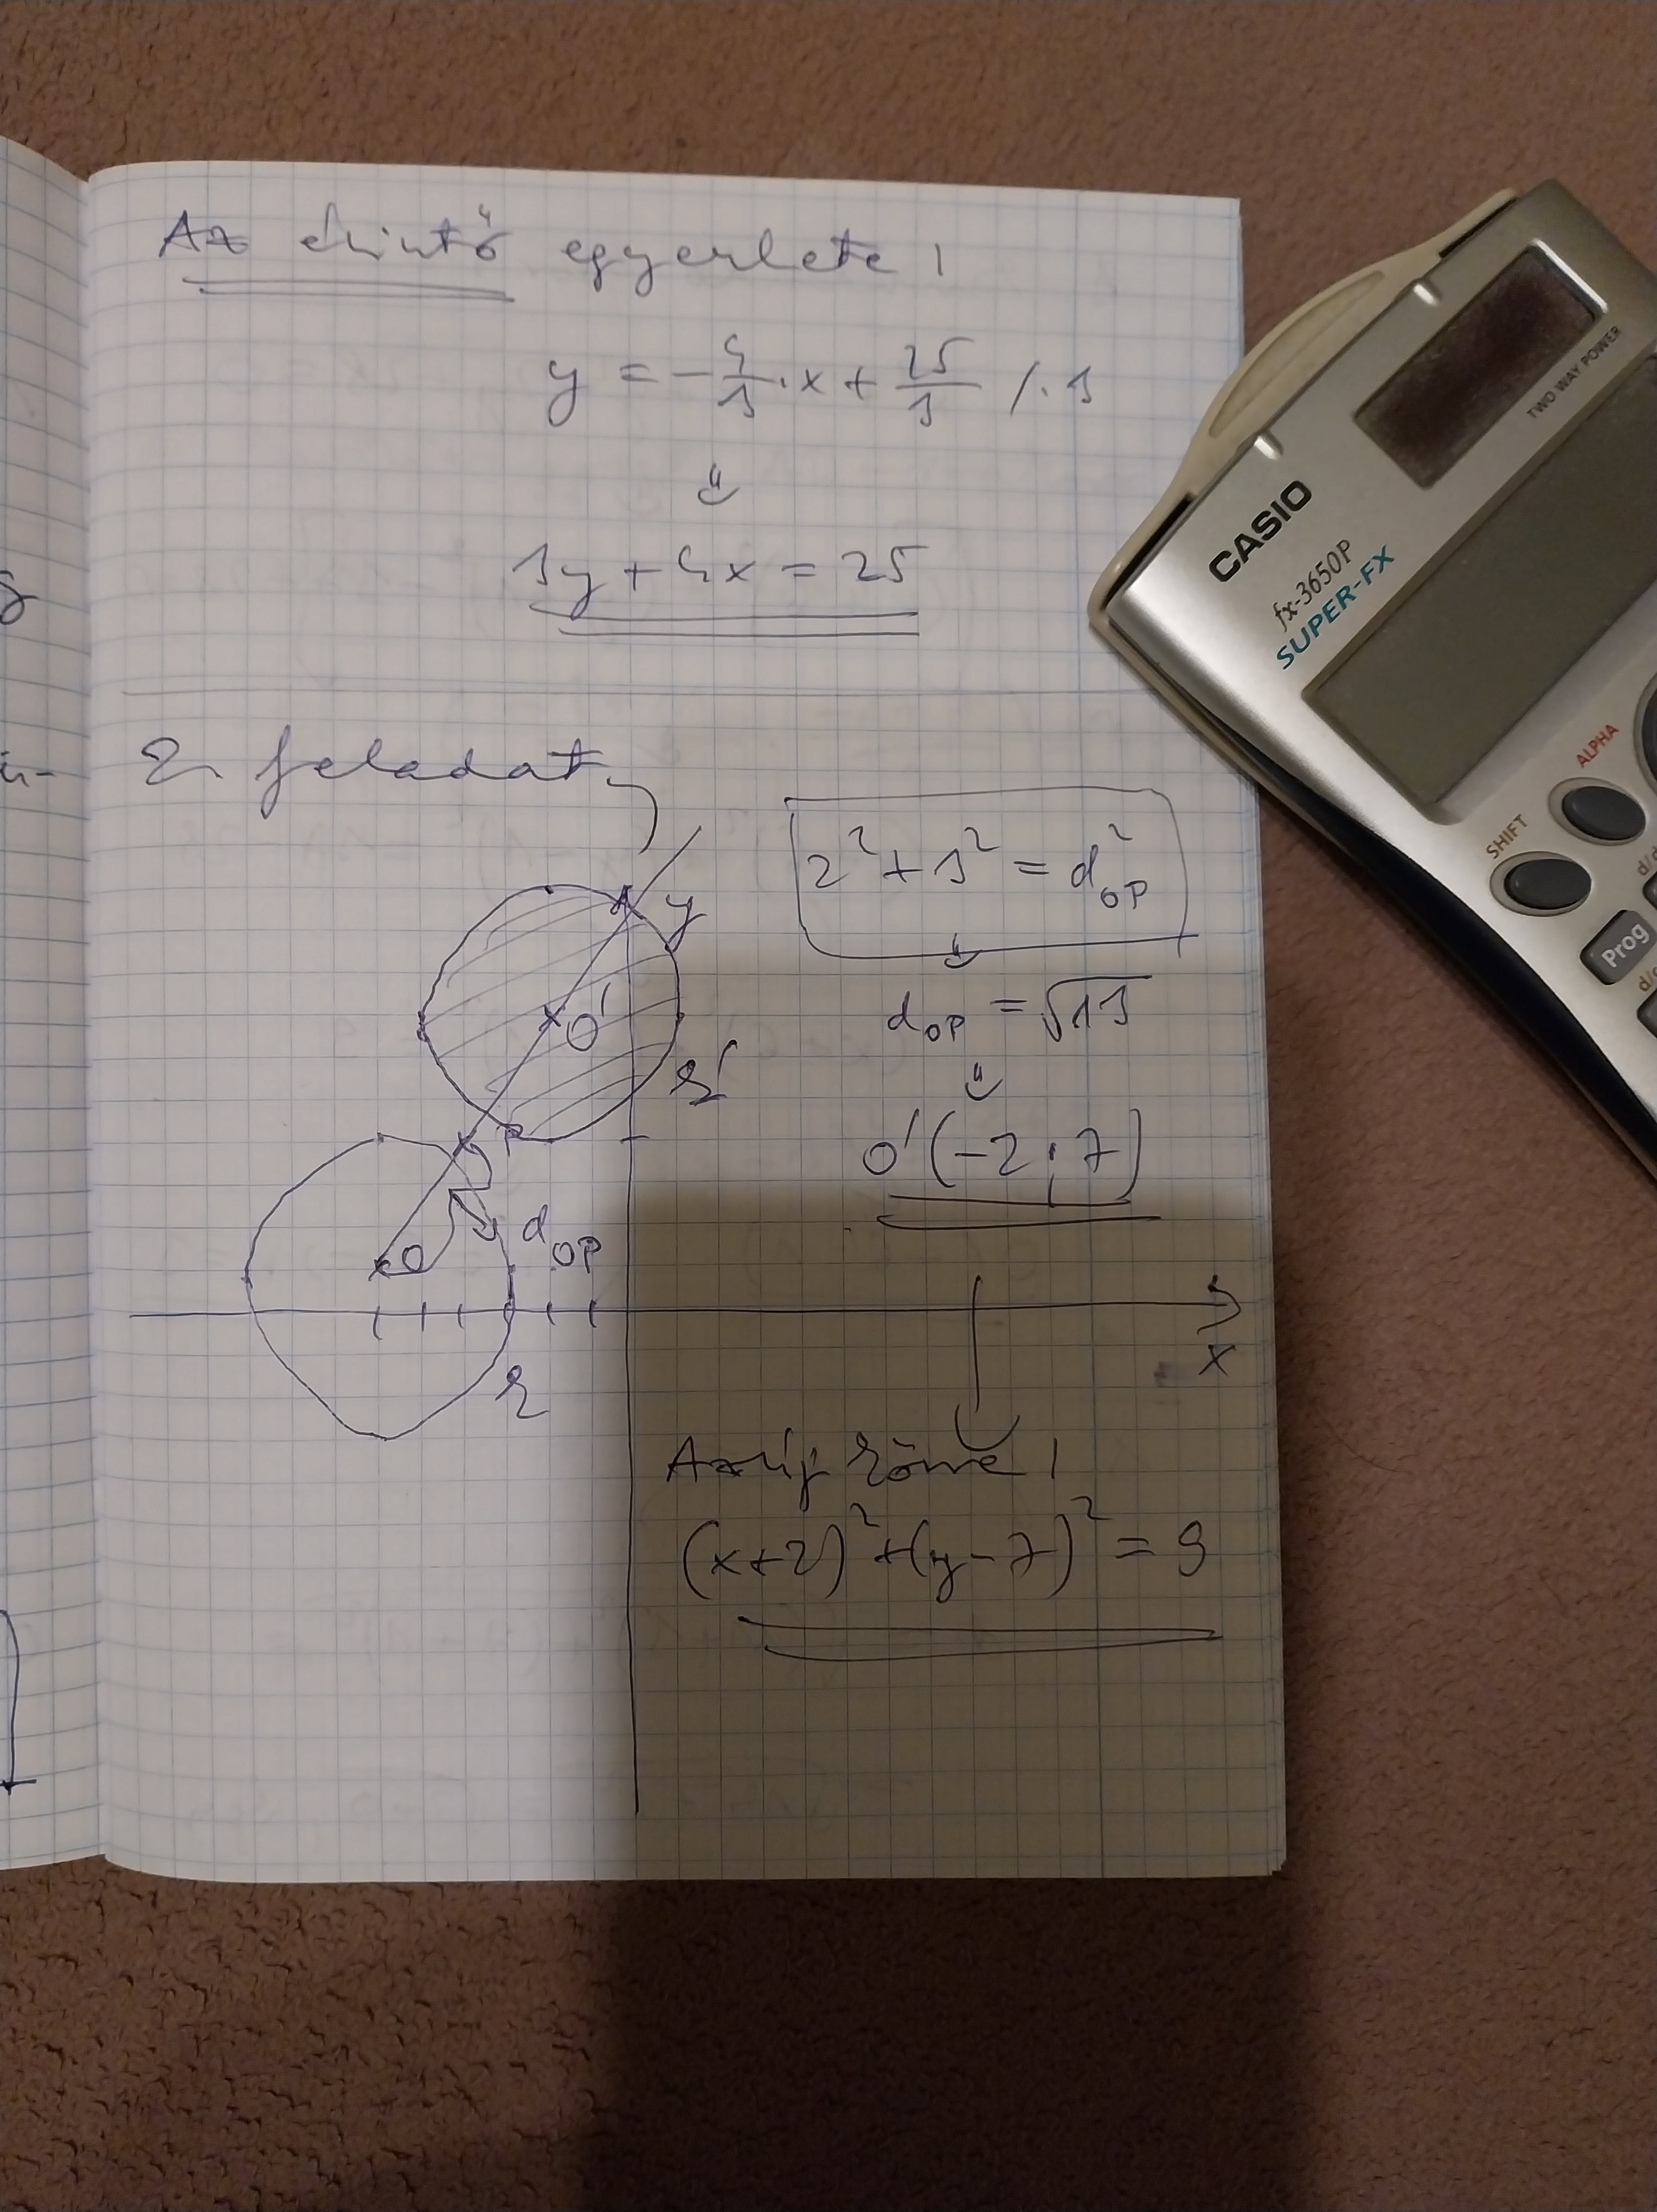 Az érintő egyenlete:
y = -4/3 · x + 25/3 / · 3
⇓
3y + 4x = 25
2. feladat
2² + 3² = d²OP
⇓
dOP = √13
⇓
O'(-2; 7)
y
O'
k'
P
O
dOP
x
k
Az új köré:
(x+2)² + (y-7)² = 9
CASIO
fx-3650P
SUPER-FX
TWO WAY POWER
SHIFT
ALPHA
Prog
d/c